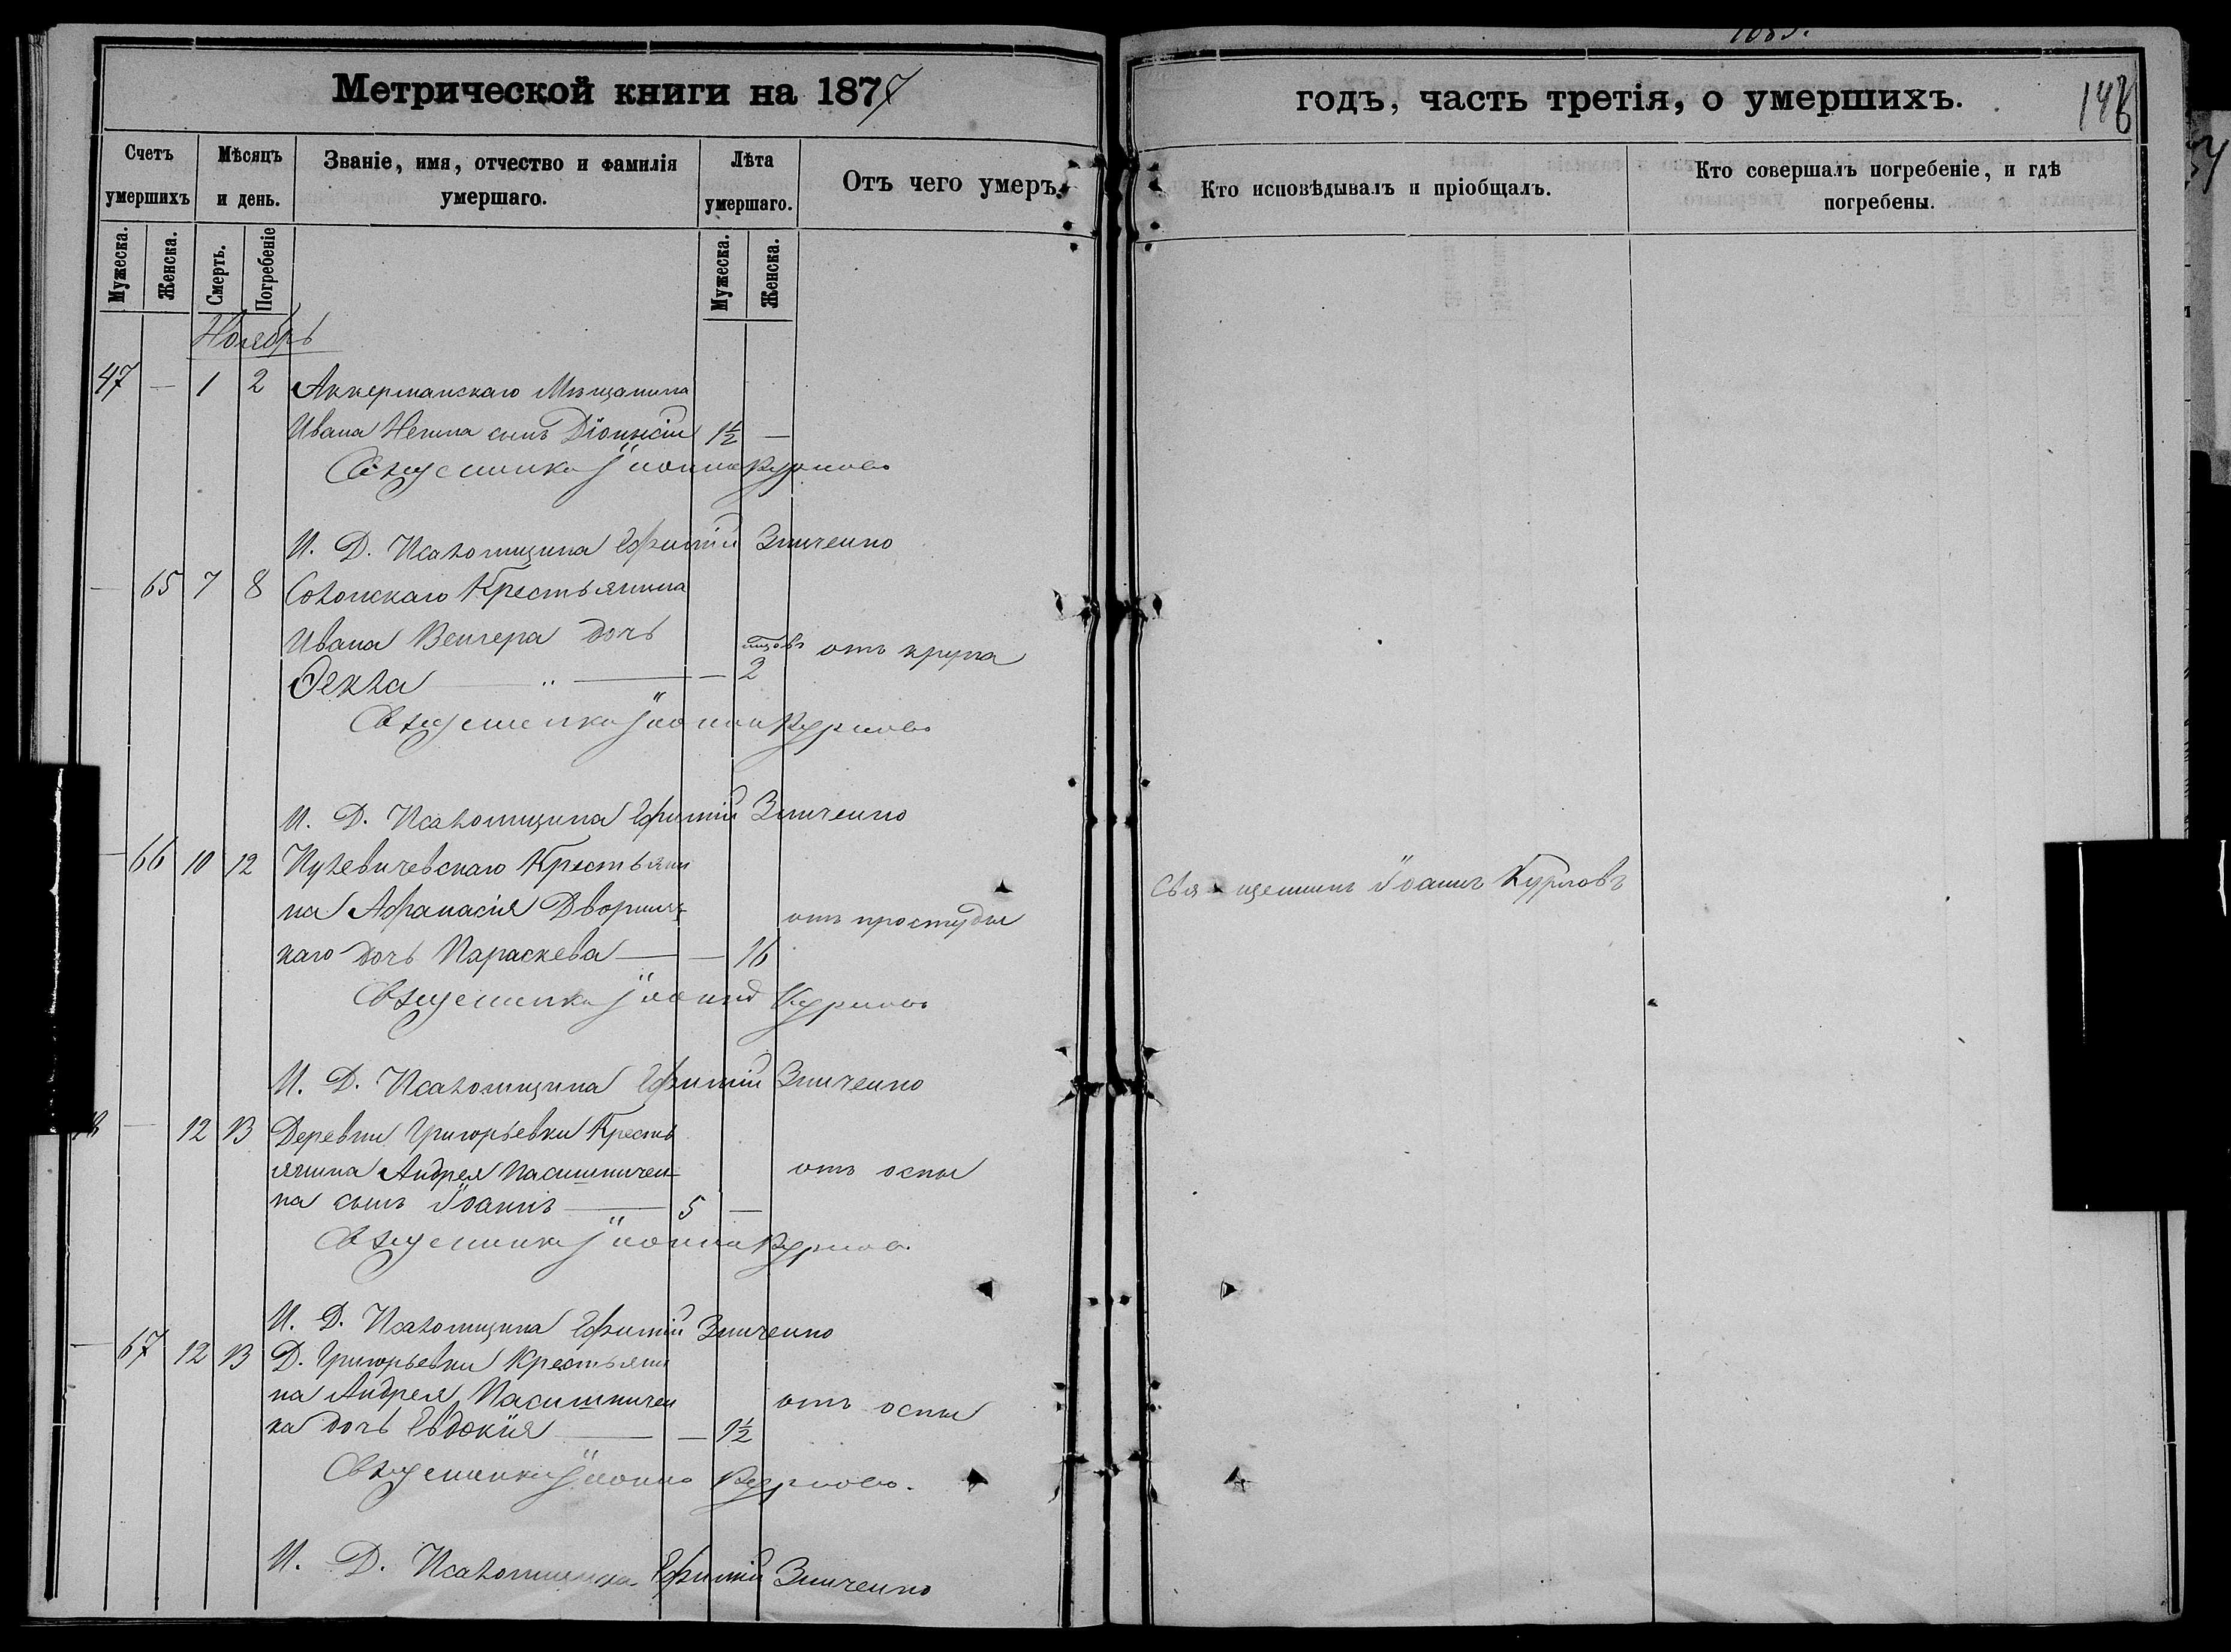 Метрической книги на 1877
Счетъ умершихъ
Мѣсяцъ и день.
Званіе, имя, отчество и фамилія умершаго.
Лѣта умершаго.
Отъ чего умеръ.
Мужеска. Женска. Смерть. Погребеніе Мужеска. Женска.
Ноябрь
47 — 1 2 Аккерманскаго Мѣщанина
Ивана сынъ Діонисій 1½ —
Священникъ Іоаннъ Курловъ
И. Д. Псаломщика Ефимій Зинченко
— 65 7 8 Крестьянина
Ивана Венгера дочь
Ѳекла — — 2 отъ крупа
Священникъ Іоаннъ Курловъ
И. Д. Псаломщика Ефимій Зинченко
— 66 10 12 Крестьяни
на Афанасія Дворниц
каго дочь Параскева — — 16 отъ простуды
Священникъ Іоаннъ Курловъ
И. Д. Псаломщика Ефимій Зинченко
— 12 13 Деревни Григорьевки Кресть
янина Андрея Пасишничен отъ оспы
ка сынъ Іоаннъ — 5 —
Священникъ Іоаннъ Курловъ
И. Д. Псаломщика Ефимій Зинченко
— 67 12 13 Д. Григорьевки Крестьяни
на Андрея Пасишничен отъ оспы
ка дочь Евдокія — — 1½
Священникъ Іоаннъ Курловъ.
И. Д. Псаломщика Ефимій Зинченко
годъ, часть третія, о умершихъ.
Кто исповѣдывалъ и пріобщалъ.
Кто совершалъ погребеніе, и гдѣ погребены.
Священникъ Іоаннъ Курловъ